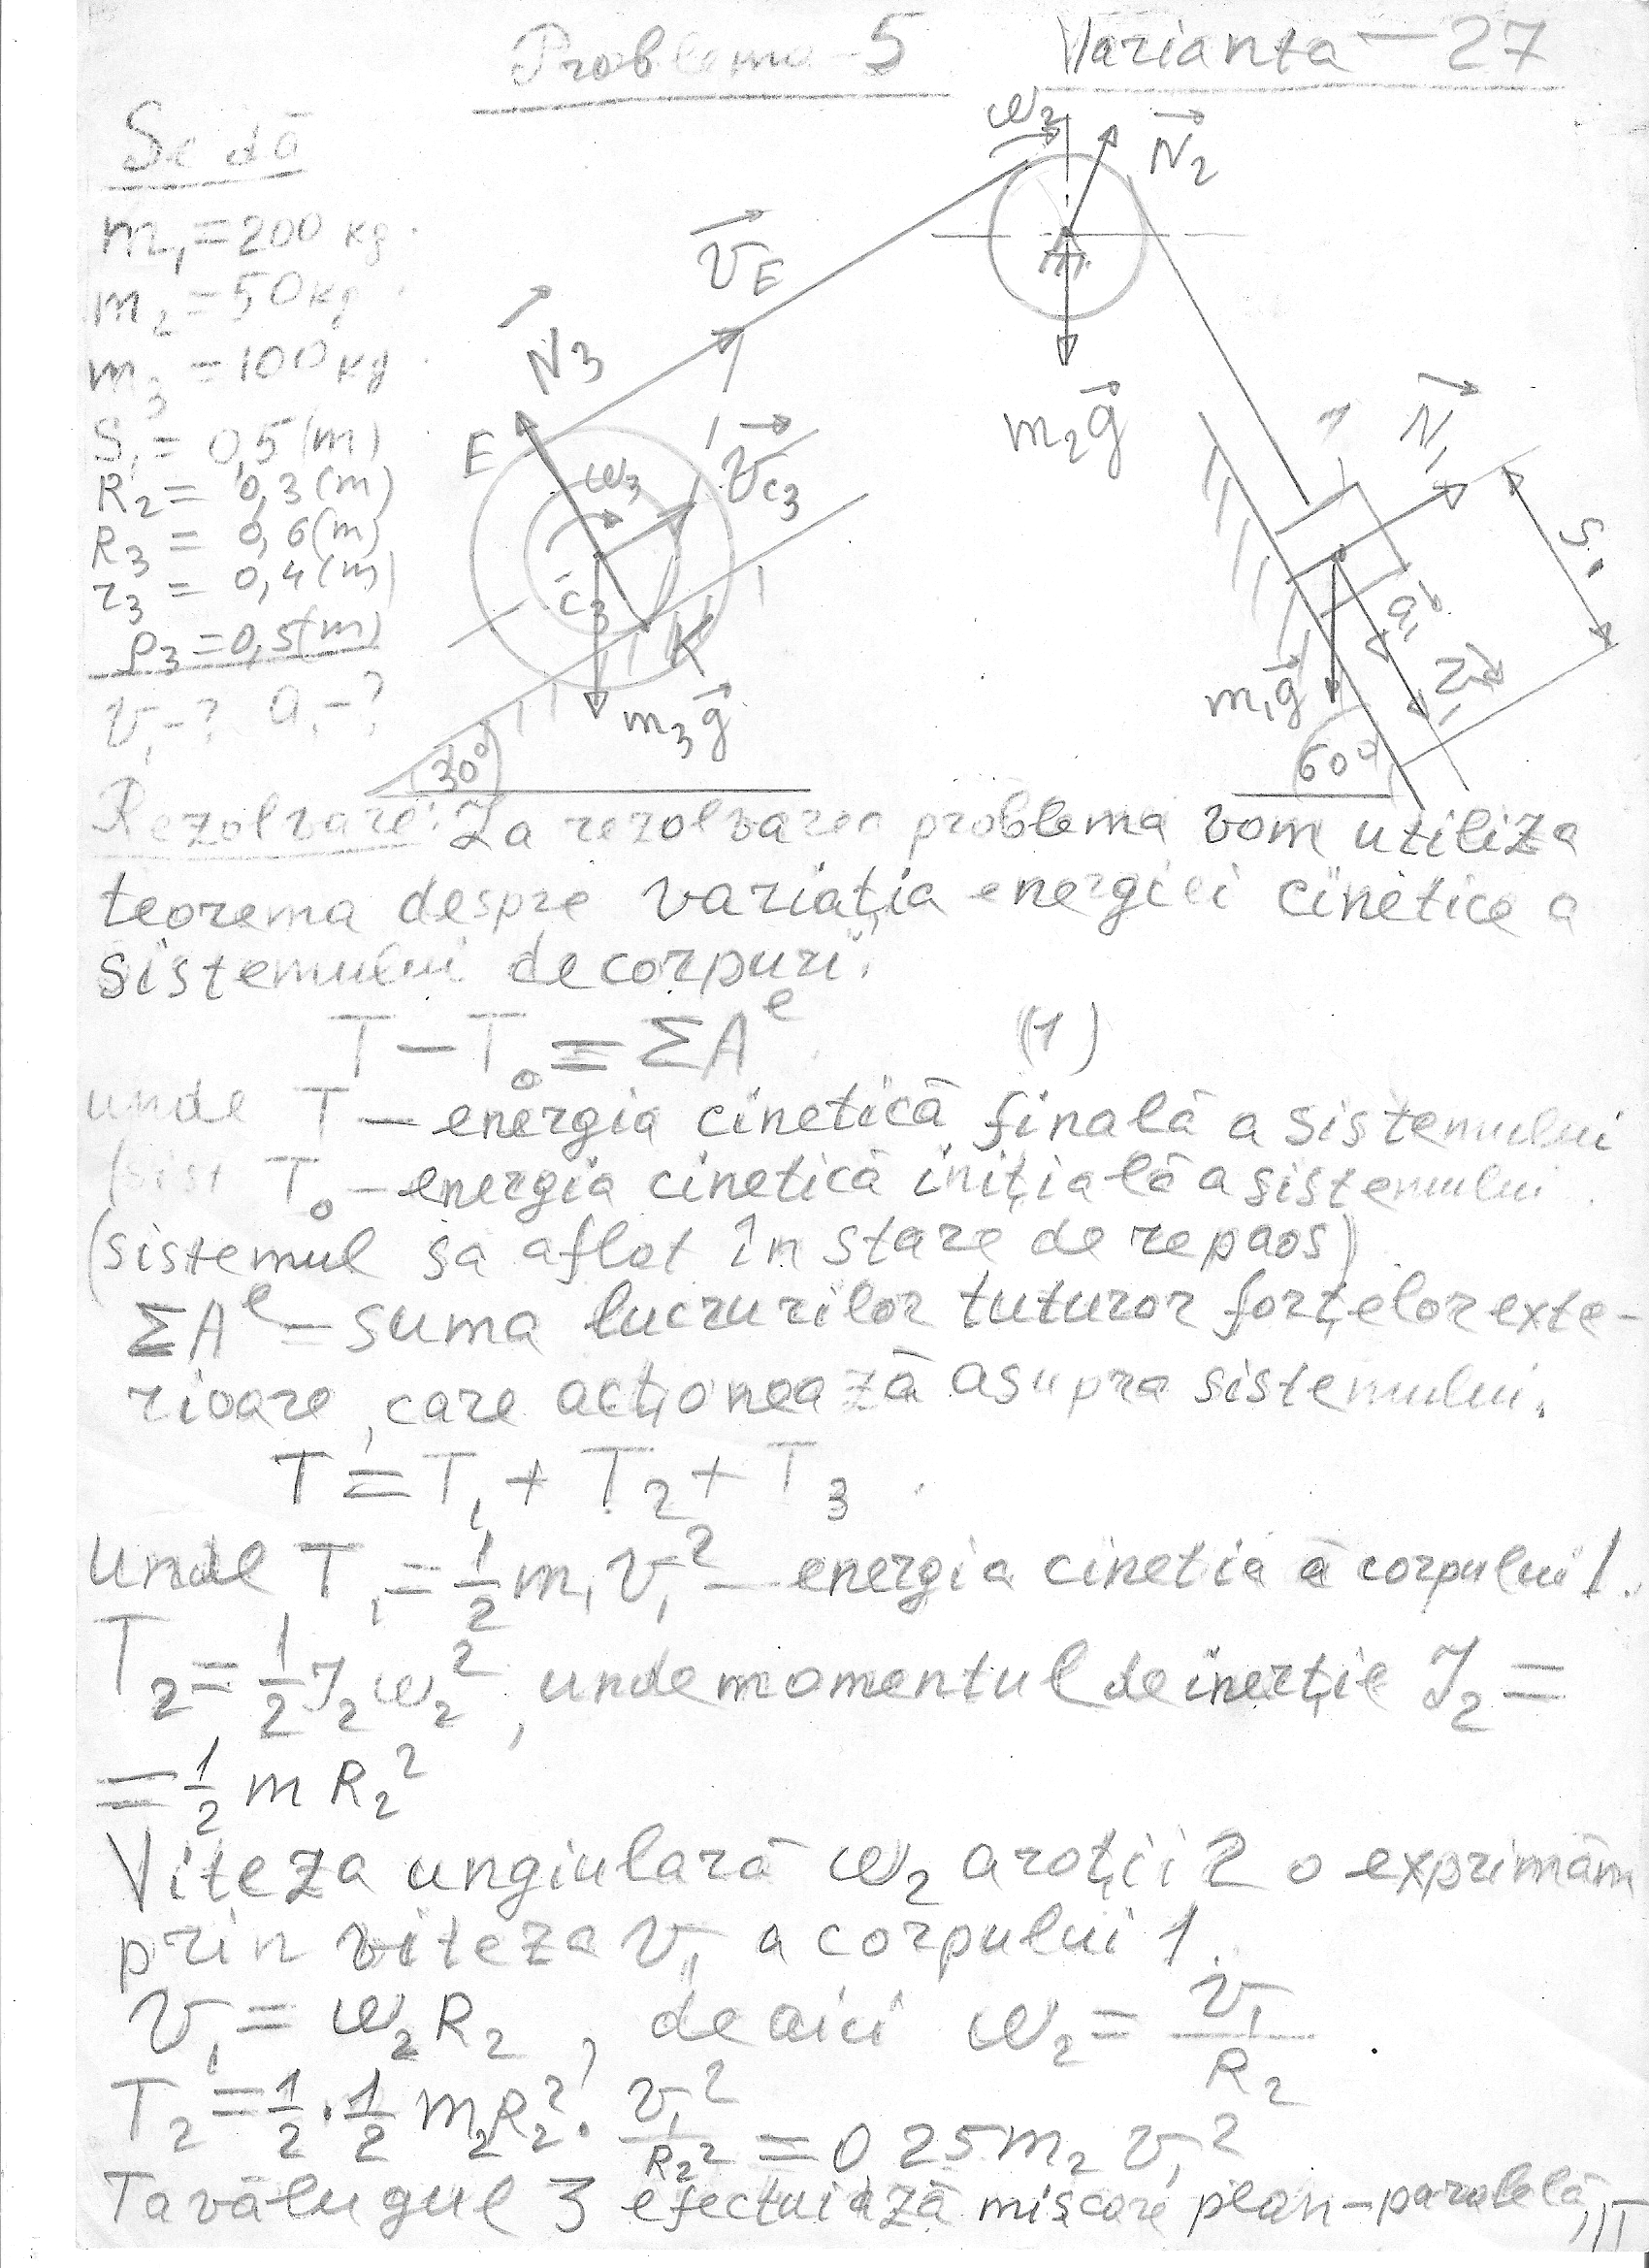 Problema-5 Varianta-27
Se dă
m₁=200 kg.
m₂=50 kg.
m₃=100 kg.
S₁= 0,5 (m)
R₂= 0,3 (m)
R₃= 0,6 (m)
r₃= 0,4 (m)
ρ₃=0,5(m)
v₁-? a₁-?
ω₂
N₂
v_E
N₃
m₂g
N₁
E
ω₃
v_C₃
S₁
C₃
K
a₁
v₁
m₁g
m₃g
30°
60°
Rezolvare: La rezolvarea problema vom utiliza
teorema despre variația energiei cinetice a
sistemului de corpuri:
T-T₀=ΣAᵉ (1)
unde T- energia cinetică finală a sistemului
T₀ - energia cinetică inițială a sistemului.
(sistemul sa aflat în stare de repaos).
ΣAᵉ= suma lucrurilor tuturor forțelor exte-
rioare, care acționează asupra sistemului.
T=T₁+T₂+T₃.
Unde T₁=½m₁v₁² - energia cinetia a corpului 1.
T₂=½J₂ω₂², unde momentul de inerție J₂=
=½mR₂²
Viteza ungiulară ω₂ a roții 2 o exprimăm
prin viteza v₁ a corpului 1.
v₁=ω₂R₂, de aici ω₂=v₁/R₂
T₂=½·½m₂R₂²·v₁²/R₂²=0 25m₂v₁²
Tavălugul 3 efectuiază mișcare plan-paralelă,